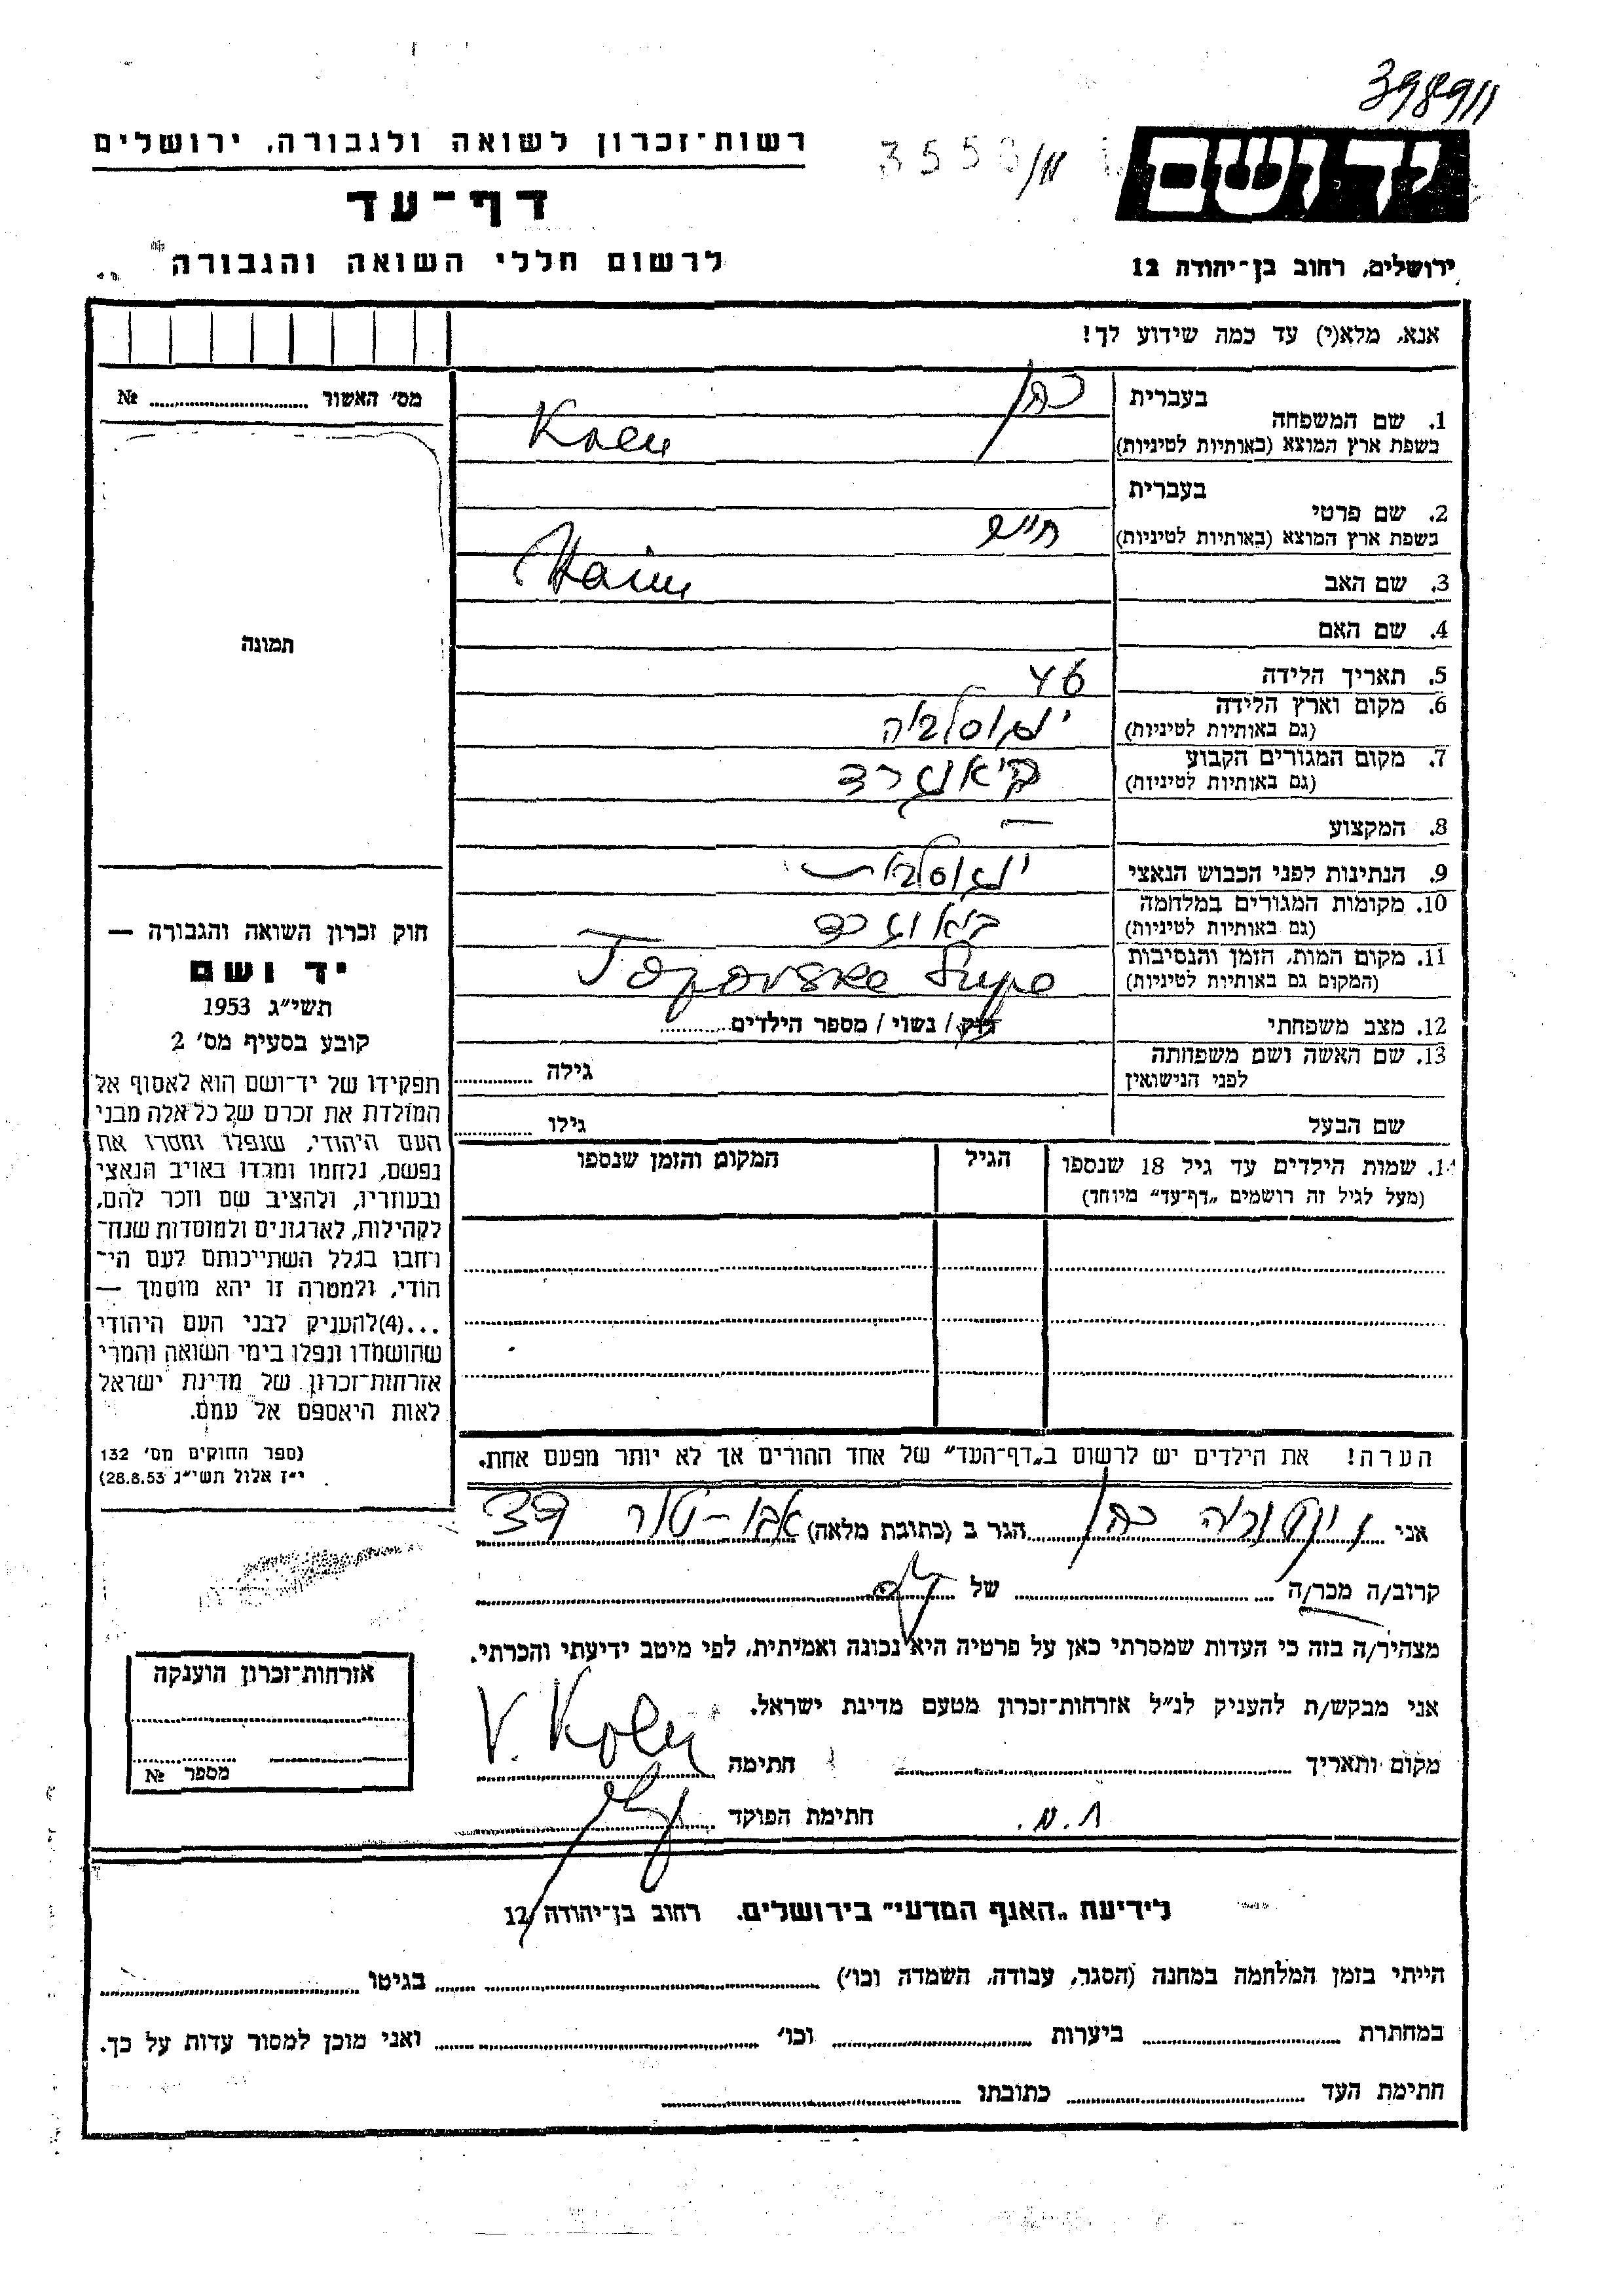 39891/1
355
יד ושם
רשות־זכרון לשואה ולגבורה, ירושלים
דף־עד
לרשום חללי השואה והגבורה
ירושלים, רחוב בן־יהודה 12
אנא, מלא(י) עד כמה שידוע לך!
מס' האשור № 
בעברית
1. שם המשפחה
כהן
בשפת ארץ המוצא (באותיות לטיניות)
Koen
בעברית
2. שם פרטי
חיים
בשפת ארץ המוצא (באותיות לטיניות)
Haim
3. שם האב
4. שם האם
תמונה
5. תאריך הלידה
6. מקום וארץ הלידה
יוגוסלביה
(גם באותיות לטיניות)
7. מקום המגורים הקבוע
(גם באותיות לטיניות)
8. המקצוע —
9. הנתינות לפני הכבוש הנאצי
יוגוסלבית
10. מקומות המגורים במלחמה
(גם באותיות לטיניות)
11. מקום המות, הזמן והנסיבות
(המקום גם באותיות לטיניות)
Topovske Šupe
12. מצב משפחתי
רוק / נשוי / מספר הילדים
13. שם האשה ושם משפחתה
לפני הנישואין
גילה
שם הבעל
גילו
14. שמות הילדים עד גיל 18 שנספו
(מעל לגיל זה רושמים „דף־עד" מיוחד)
הגיל
המקום והזמן שנספו
חוק זכרון השואה והגבורה —
יד ושם
תשי"ג 1953
קובע בסעיף מס' 2
תפקידו של יד־ושם הוא לאסוף אל
המולדת את זכרם של כל אלה מבני
העם היהודי, שנפלו ומסרו את
נפשם, נלחמו ומרדו באויב הנאצי
ובעוזריו, ולהציב שם וזכר להם,
לקהילות, לארגונים ולמוסדות שנח־
רבו בגלל השתייכותם לעם הי־
הודי, ולמטרה זו יהא מוסמך —
...(4)להעניק לבני העם היהודי
שהושמדו ונפלו בימי השואה והמרי
אזרחות־זכרון של מדינת ישראל
לאות היאספם אל עמם.
(ספר החוקים מס' 132
י"ז אלול תשי"ג 28.8.53)
הערה! את הילדים יש לרשום ב„דף־העד" של אחד ההורים אך לא יותר מפעם אחת.
אני ויקטוריה כהן הגר ב (כתובת מלאה) אבו-טור 39
קרוב/ה מכר/ה של
מצהיר/ה בזה כי העדות שמסרתי כאן על פרטיה היא נכונה ואמיתית, לפי מיטב ידיעתי והכרתי.
אני מבקש/ת להעניק לנ"ל אזרחות־זכרון מטעם מדינת ישראל.
מקום ותאריך
חתימה V. Koen
חתימת הפוקד
אזרחות־זכרון הוענקה
מספר №
לידיעת „האגף המדעי" בירושלים, רחוב בן־יהודה 12
הייתי בזמן המלחמה במחנה (הסגר, עבודה, השמדה וכו') בגיטו
במחתרת ביערות וכו' ואני מוכן למסור עדות על כך.
חתימת העד כתובתו